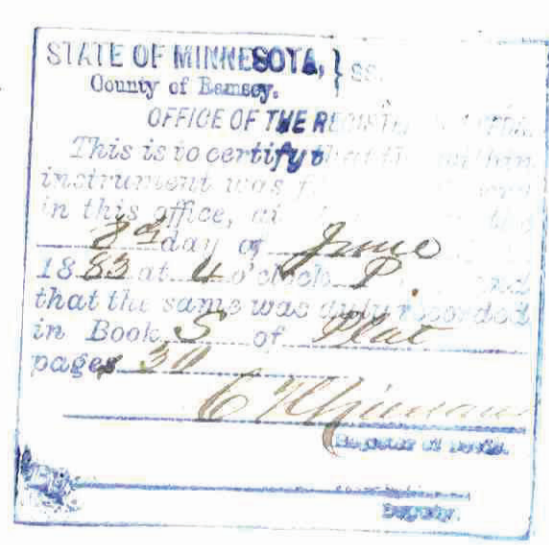 STATE OF MINNESOTA, } SS.
County of Ramsey.
OFFICE OF THE REGISTER
This is to certify that the within
instrument was
in this office, at
8th day of June
1883 at 4 o'clock P. and
that the same was duly recorded
in Book 5 of Plat
pages 30
Register of Deeds.
Deputy.